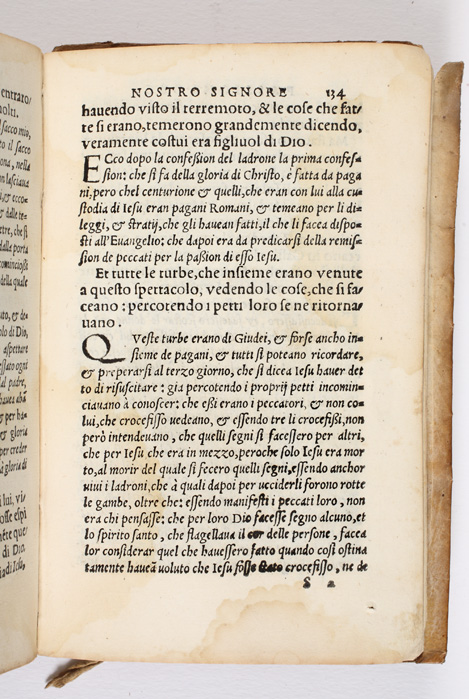 entraro/
nolti.
l sacco mio,
to il sacco
ona, nella
an lasciava
e, & ecco=
& dalle te=
ttre, che si
dalle porte
comincioßi
della quale
to, & de=
olo di Dio,
aspettare
stato ogni
al padre,
haueа ahá
& per ha=
& gloria
per creder
à gloria di
i lui, vi=
osse espi
nête que=
di Dio.
ia di Iesu,
NOSTRO SIGNORE 134
hauendo visto il terremoto, & le cose che fat/
te si erano, temerono grandemente dicendo,
veramente costui era figliuol di Dio.
ECco dopo la confeßion del ladrone la prima confes=
sion: che si fa della gloria di Christo, è fatta da paga
ni, pero chel centurione & quelli, che eran con lui alla cu=
stodia di Iesu eran pagani Romani, & temeano per li di=
leggi, & stratij, che gli hauean fatti, il che li facea dispo=
sti all'Euangelio: che dapoi era da predicarsi della remis=
sion de peccati per la paßion di esso Iesu.
Et tutte le turbe, che insieme erano venute
a questo spettacolo, vedendo le cose, che si fa=
ceano: percotendo i petti loro se ne ritorna/
uano.
QVeste turbe erano di Giudei, & forse ancho in=
sieme de pagani, & tutti si poteano ricordare,
& preperarsi al terzo giorno, che si dicea Iesu hauer det
to di risuscitare: gia percotendo i proprij petti incomin=
ciauano à conoscer: che eßi erano i peccatori, & non co=
lui, che crocefisso uedeano, & essendo tre li crocefißi, non
però intendeuano, che quelli segni si facessero per altri,
che per Iesu che era in mezzo, peroche solo Iesu era mor
to, al morir del quale si fecero quelli segni, essendo anchor
uiui i ladroni, che à quali dapoi per ucciderli forono rotte
le gambe, oltre che: essendo manifesti i peccati loro, non
era chi pensasse: che per loro Dio facesse segno alcuno, et
lo spirito santo, che flagellaua il cor delle persone, facea
lor considerar quel che hauessero fatto quando così ostina
tamente haueã voluto che Iesu fosse stato crocefisso, ne de
S 2